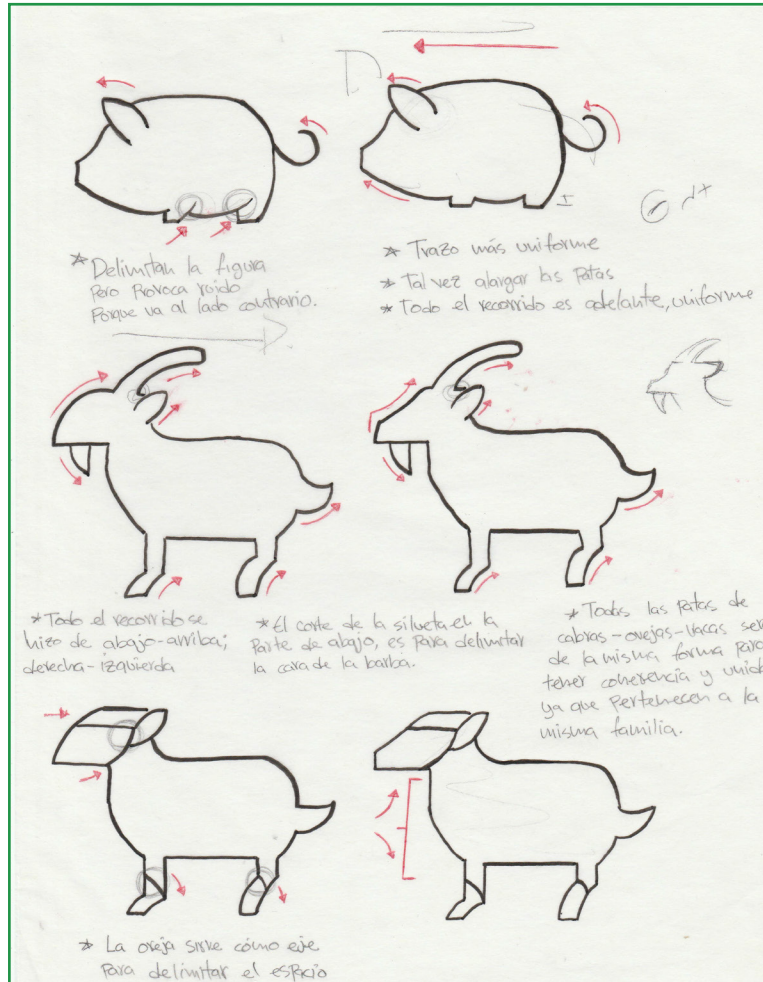 * Delimitan la figura
Pero Provoca ruido
Porque va al lado contrario.
* Trazo más uniforme
* Tal vez alargar las Patas
* Todo el recorrido es adelante, uniforme
* Todo el recorrido se
hizo de abajo-arriba;
derecha-izquierda
* El corte de la silueta en la
Parte de abajo, es Para delimitar
la cara de la barba.
* Todas las Patas de
cabras-ovejas-vacas ser
de la misma forma Para
tener coherencia y unid
ya que Pertenecen a la
misma familia.
* La oreja sirve cómo eje
Para delimitar el espacio